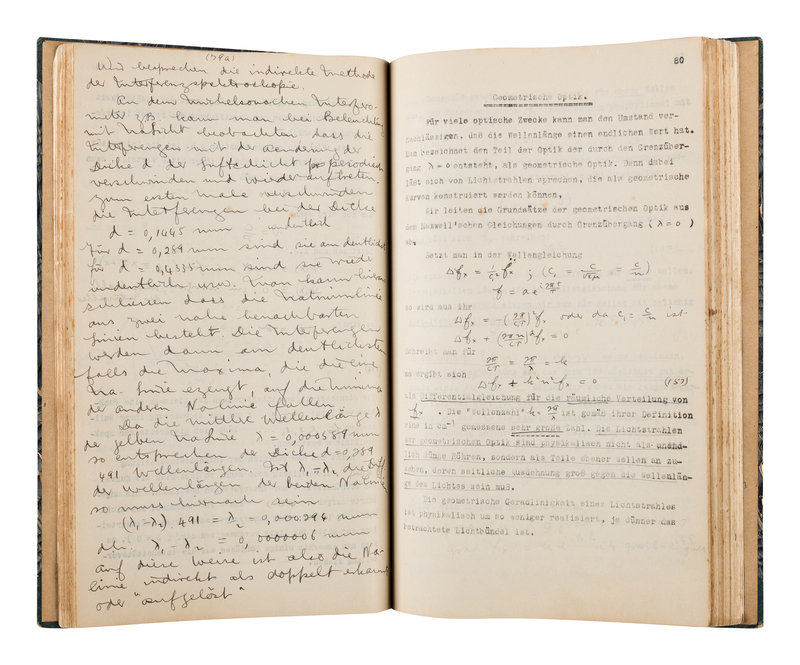 (79a)
Wir besprechen die indirekte Methode
der Interferenzspektroskopie.
An dem Michelsonschen Interfero-
meter z.B. kann man bei Beleuchtung
mit Nalicht beobachten dass die
Interferenzen mit der Aenderung der
Dicke d der Luftschicht periodisch
verschwinden und wieder auftreten.
Zum ersten Male verschwinden
die Interferenzen bei der Dicke
d = 0,1445 mm undeutlich
Für d = 0,289 mm sind sie am deutlichst
für d = 0,4335 mm sind sie wieder
undeutlich usw. Man kann hieraus
schliessen dass die Natriumlinie
aus zwei nahe benachbarten
Linien besteht. Die Interferenzen
werden dann am deutlichsten
falls die Maxima, die die eine
Na-Linie erzeugt, auf die Minima
der anderen Nalinie fallen.
Da die mittlere Wellenlänge λ
der gelben Nalinie λ = 0,000589 mm
so entsprechen der Dicke d = 0,289
491 Wellenlängen. Ist λ₁-λ₂ die Diff
der Wellenlängen der beiden Nalinie
so muss hiernach sein
(λ₁-λ₂) 491 = λ/2 = 0,000296 mm
λ₁ λ₂ = 0,0000006 mm
auf diese Weise ist also die Na-
linie indirekt als doppelt erkannt
oder "aufgelöst"
80
Geometrische Optik.
Für viele optische Zwecke kann man den Umstand ver-
nachlässigen, daß die Wellenlänge einen endlichen Wert hat.
Man bezeichnet den Teil der Optik der durch den Grenzüber-
gang λ = 0 entsteht, als geometrische Optik. Denn dabei
läßt sich von Lichtstrahlen sprechen, die als geometrische
Kurven konstruiert werden können.
Wir leiten die Grundsätze der geometrischen Optik aus
den Maxwell'schen Gleichungen durch Grenzübergang (λ = 0)
ab.
Setzt man in der Wellengleichung
Δfx = 1/c₁² f̈x ; (c₁ = c/√εμ = c/n)
f = a e^(i 2πt/τ)
so wird aus ihr
Δfx = -(2π/c₁τ)² fx oder da c₁ = c/n ist
Δfx + (2πn/cτ)² fx = 0
Schreibt man für
2π/cτ = 2π/λ = k
so ergibt sich
Δfx + k²n² fx = 0 (157)
als Differentialgleichung für die räumliche Verteilung von
fx. Die "Wellenzahl" k = 2π/λ ist gemäß ihrer Definition
eine in cm⁻¹ gemessene sehr große Zahl. Die Lichtstrahlen
der geometrischen Optik sind physikalisch nicht als unend-
lich dünne Röhren, sondern als Teile ebener Wellen an zu-
sehen, deren seitliche Ausdehnung groß gegen die Wellenlän-
ge des Lichtes sein muß.
Die geometrische Geradlinigkeit eines Lichtstrahles
ist physikalisch um so weniger realisiert, je dünner das
betrachtete Lichtbündel ist.